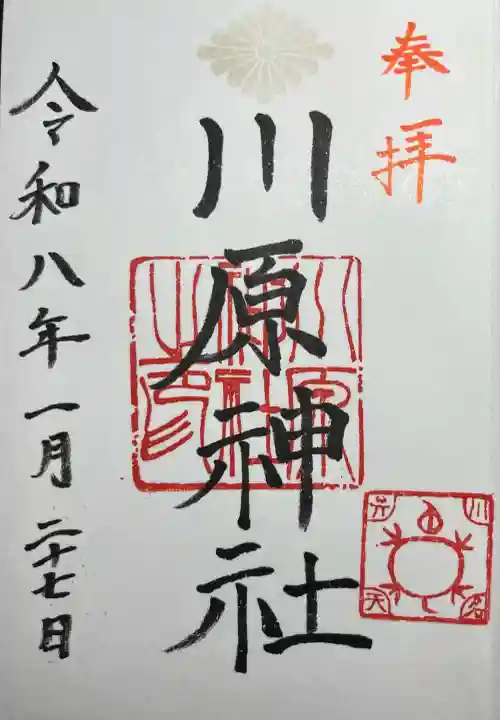 奉拝
川原神社
令和八年一月二十七日
川名弁天